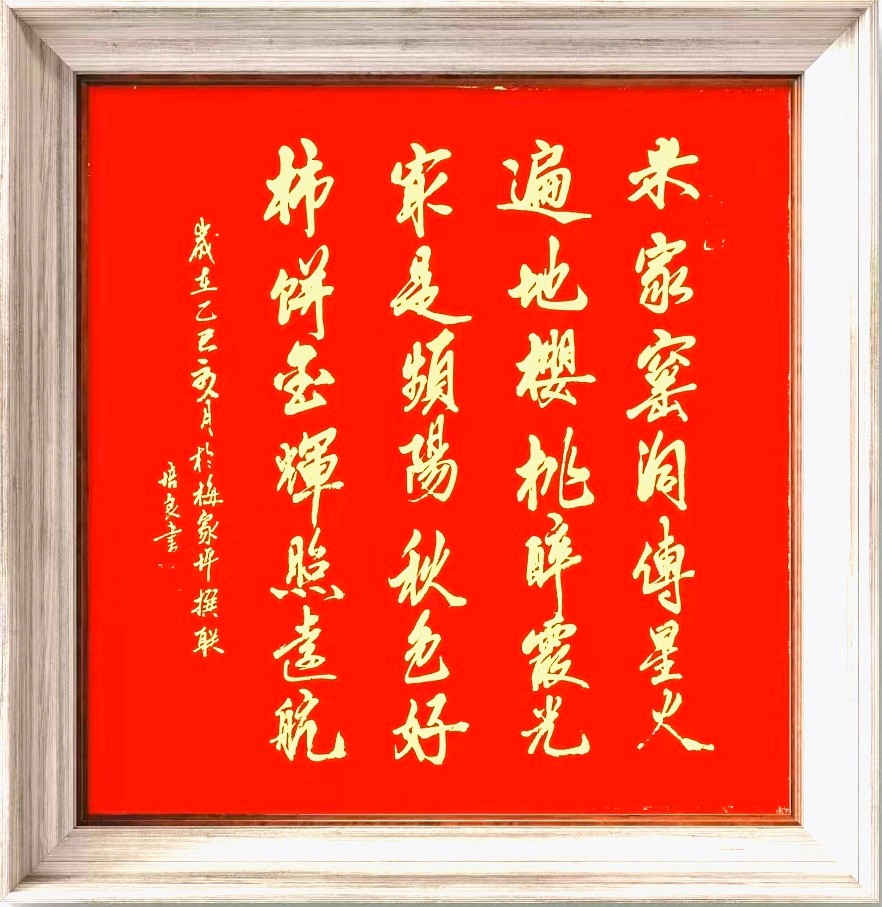 米家窑洞傳星火
遍地櫻桃醉霞光
最是頻陽秋色好
柿餅金輝照遠航
歲在乙巳亥月於梅家坪撰联
培良書